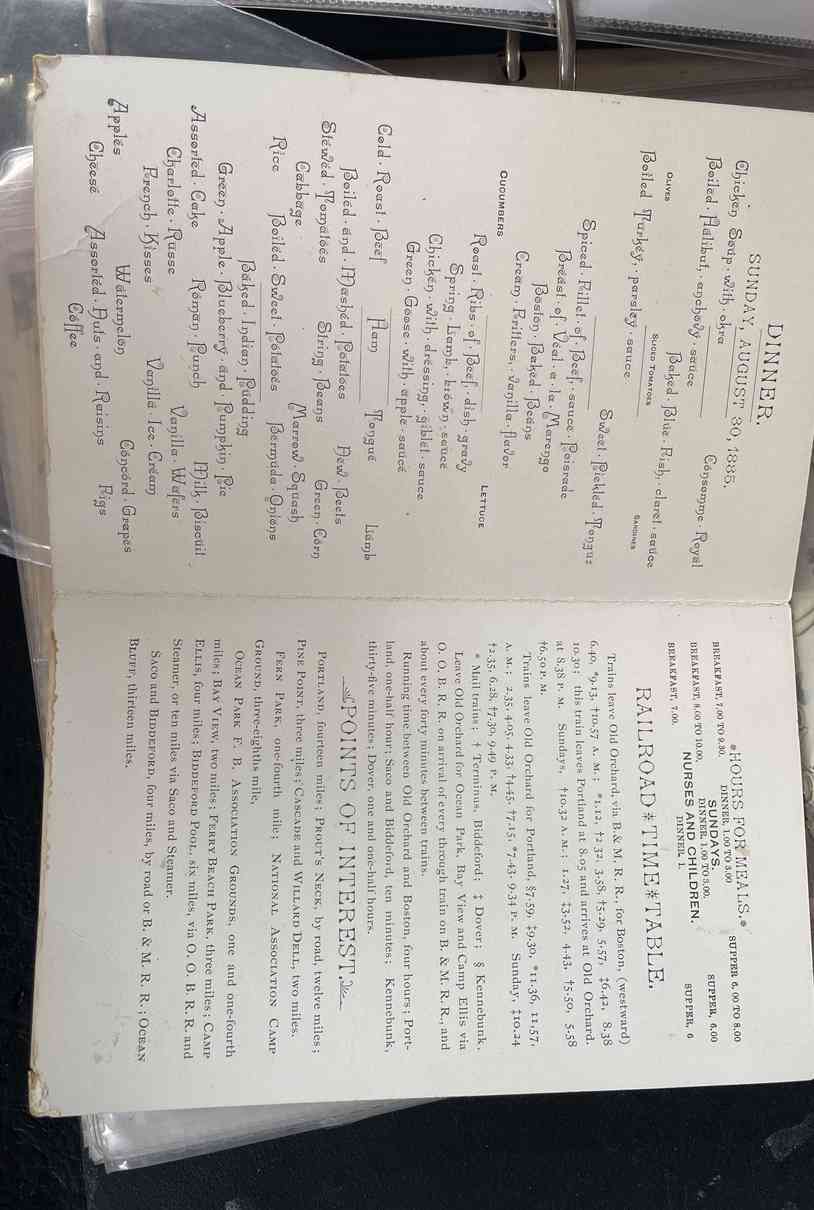 DINNER.
SUNDAY, AUGUST 30, 1885.
Chicken Soup with okra Consomme Royal
Boiled Halibut, anchovy sauce
Baked Blue Fish, claret sauce
OLIVES SLICED TOMATOES SARDINES
Boiled Turkey, parsley sauce
Sweet Pickled Tongue
Spiced Fillet of Beef, sauce Poivrade
Breast of Veal a la Marengo
Boston Baked Beans
Cream Fritters, vanilla flavor
CUCUMBERS LETTUCE
Roast Ribs of Beef, dish gravy
Spring Lamb, brown sauce
Chicken with dressing, giblet sauce
Green Goose with apple sauce
Cold Roast Beef Ham Tongue Lamb
Boiled and Mashed Potatoes New Beets
Stewed Tomatoes String Beans Green Corn
Cabbage Marrow Squash
Rice Boiled Sweet Potatoes Bermuda Onions
Baked Indian Pudding
Green Apple, Blueberry and Pumpkin Pie
Assorted Cake Roman Punch Milk Biscuit
Charlotte Russe Vanilla Wafers
French Kisses Vanilla Ice Cream
Apples Watermelon Concord Grapes
Cheese Assorted Nuts and Raisins Figs
Coffee
*HOURS FOR MEALS.*
BREAKFAST, 7.00 TO 9.30. DINNER, 1.00 TO 3.00 SUPPER 6.00 TO 8.00
SUNDAYS.
BREAKFAST, 8.00 TO 10.00. DINNER, 1.00 TO 3.00. SUPPER, 6.00
NURSES AND CHILDREN.
BREAKFAST, 7.00. DINNER, 1. SUPPER, 6
RAILROAD*TIME*TABLE.
Trains leave Old Orchard, via B. & M. R. R., for Boston, (westward)
6.40, *9.13, †10.57 A. M.; *1.12, †2 32, 3.58, †5.29, 5.57, ‡6.42, 8.38
10.30; this train leaves Portland at 8.05 and arrives at Old Orchard.
at 8.38 P. M. Sundays, †10.32 A. M.; 1.27, ‡3.52, 4.43, †5.50, 5.58
†6.50 P. M.
Trains leave Old Orchard for Portland, §7.59, ‡9.30, *11.36, 11,57,
A. M.; 2.35, 4.05, 4.33, †4.45, †7.15, *7.43, 9.34 P. M. Sunday, ‡10.24
†2.35, 6.28, †7.30, 9.49 P. M.
* Mail trains; † Terminus, Biddeford; ‡ Dover; § Kennebunk.
Leave Old Orchard for Ocean Park, Bay View and Camp Ellis via
O. O. B. R. R. on arrival of every through train on B. & M. R. R., and
about every forty minutes between trains.
Running time between Old Orchard and Boston, four hours; Port-
land, one-half hour; Saco and Biddeford, ten minutes; Kennebunk,
thirty-five minutes; Dover, one and one-half hours.
POINTS OF INTEREST.
PORTLAND, fourteen miles; PROUT'S NECK, by road, twelve miles;
PINE POINT, three miles; CASCADE and WILLARD DELL, two miles.
FERN PARK, one-fourth mile; NATIONAL ASSOCIATION CAMP
GROUND, three-eighths mile,
OCEAN PARK F. B. ASSOCIATION GROUNDS, one and one-fourth
miles; BAY VIEW, two miles; FERRY BEACH PARK, three miles; CAMP
ELLIS, four miles; BIDDEFORD POOL, six miles, via O. O. B. R. R. and
Steamer, or ten miles via Saco and Steamer.
SACO and BIDDEFORD, four miles, by road or B. & M. R. R.; OCEAN
BLUFF, thirteen miles.